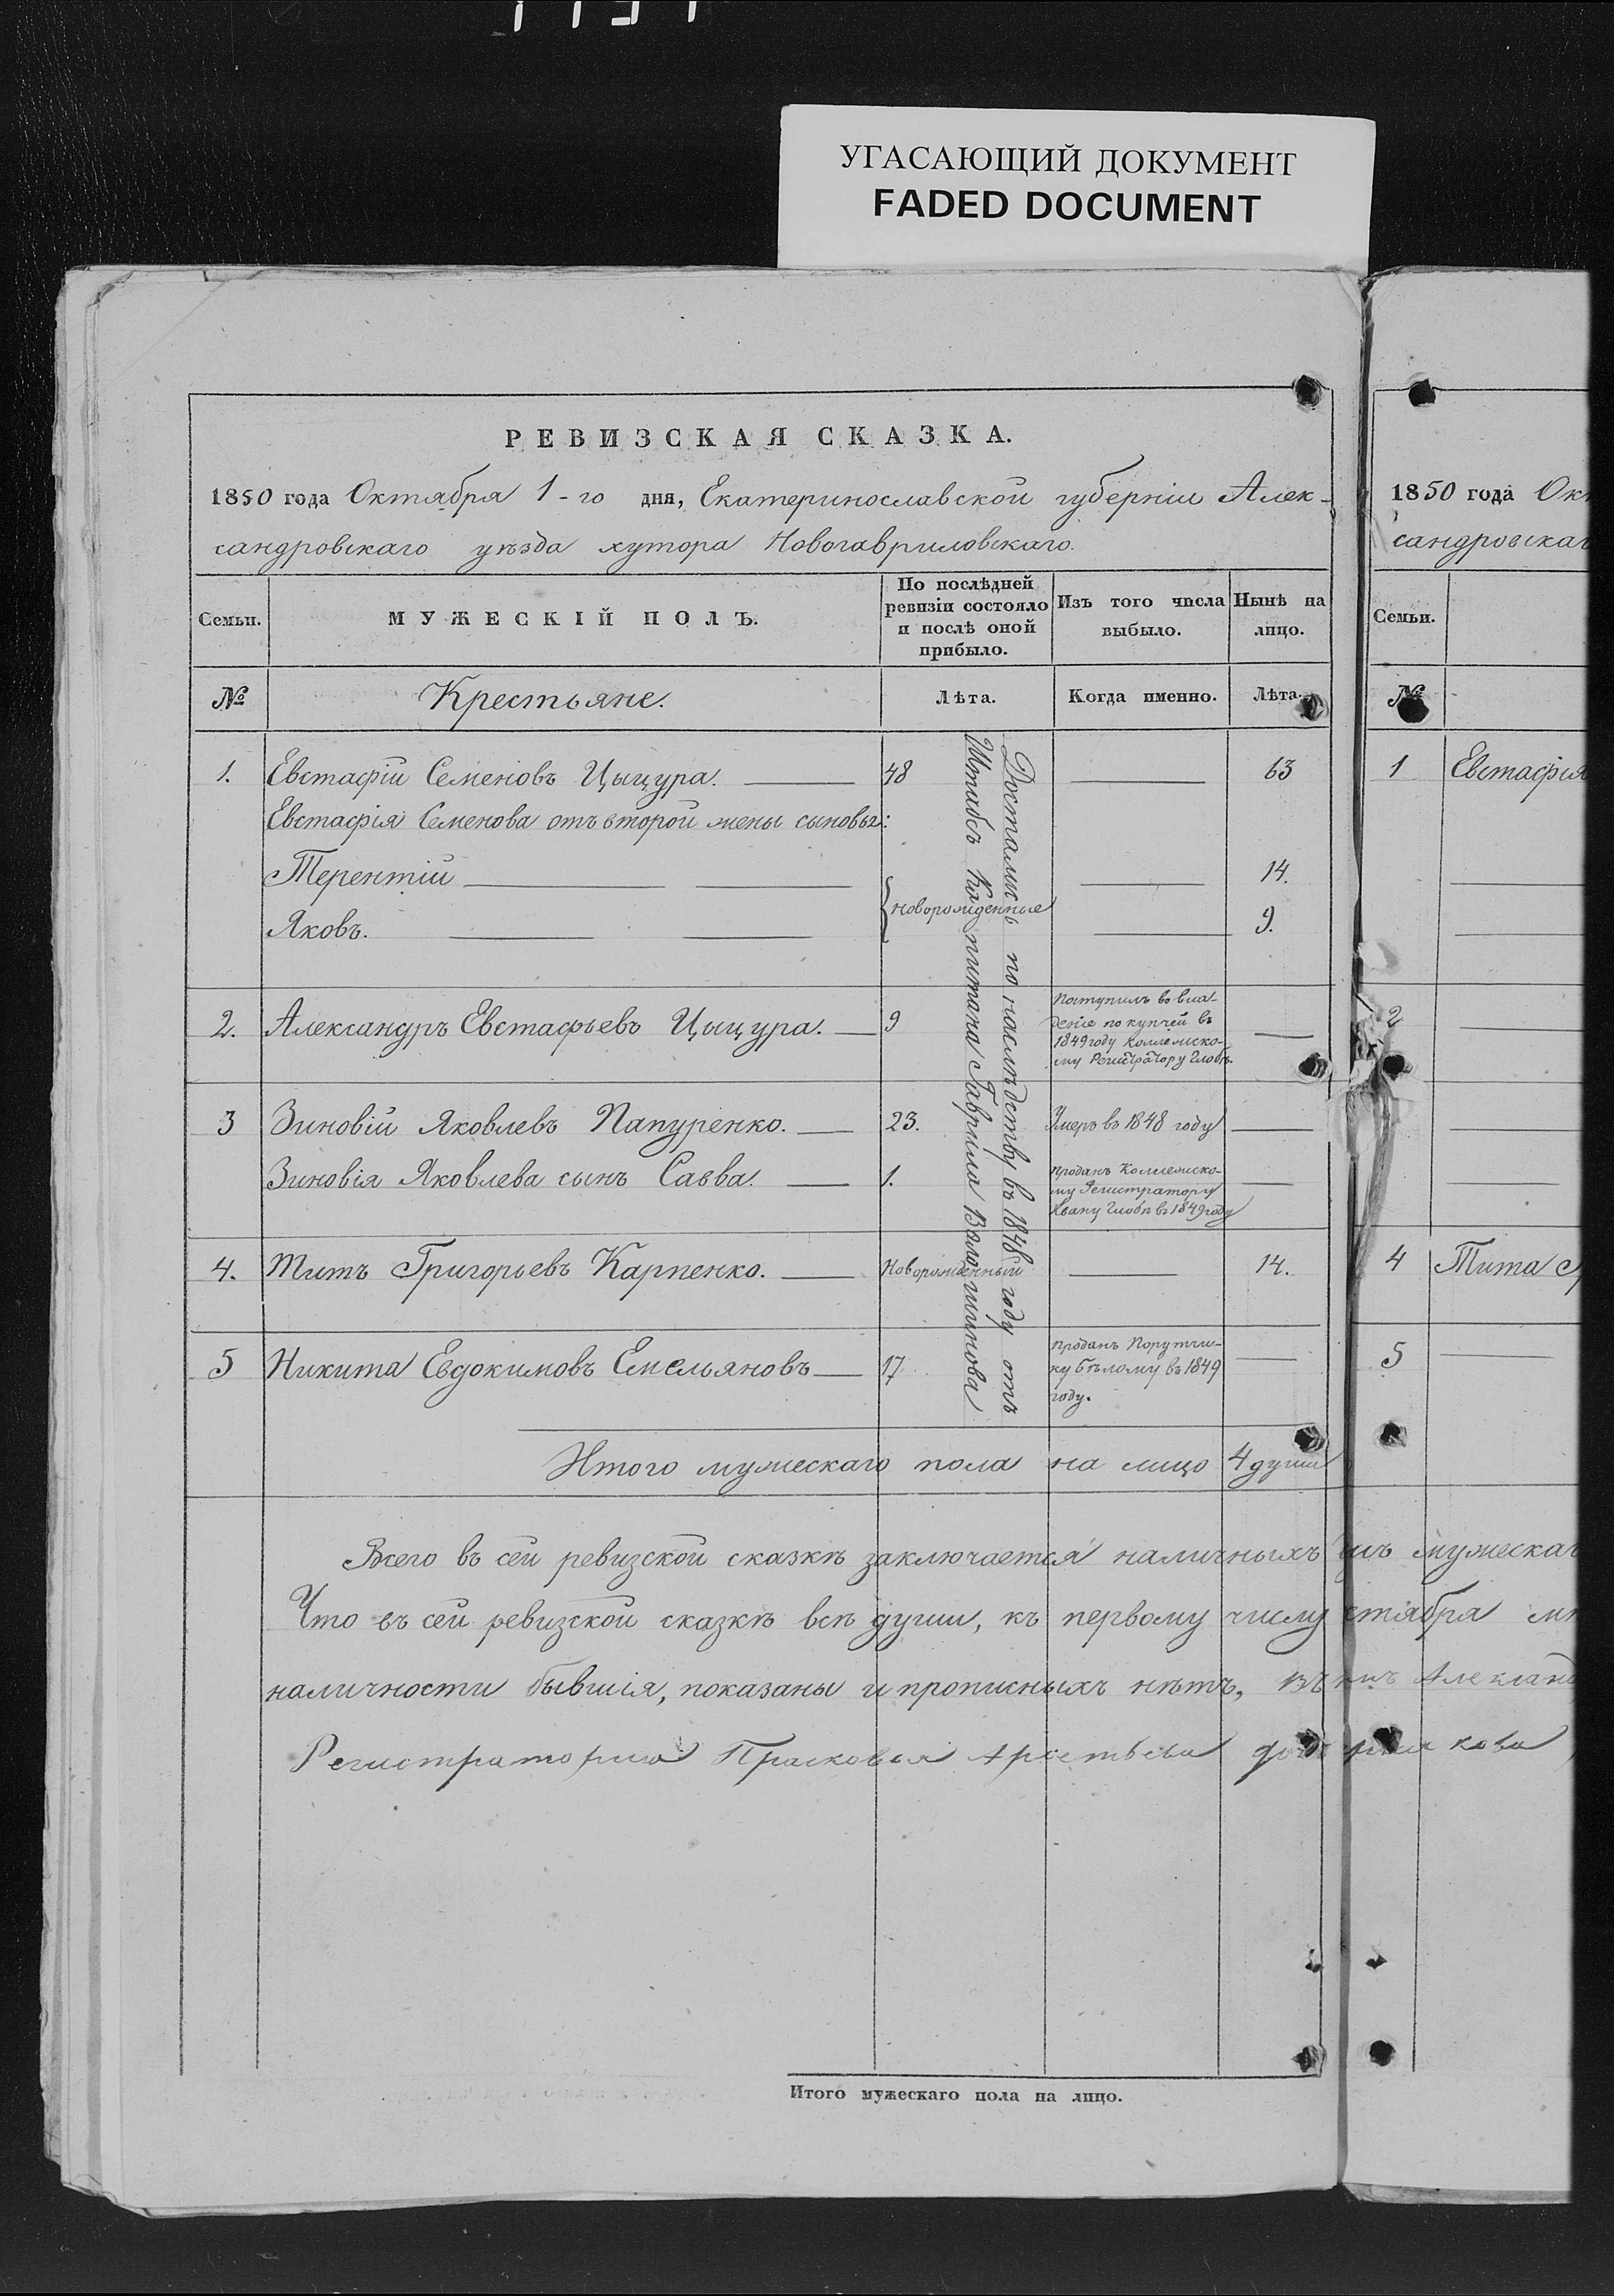 УГАСАЮЩИЙ ДОКУМЕНТ
FADED DOCUMENT
РЕВИЗСКАЯ СКАЗКА.
1850 года Октября 1-го дня, Екатеринославской губерніи Алек-
сандровскаго уѣзда хутора Новогавриловскаго.
Семьи.
МУЖЕСКІЙ ПОЛЪ.
По послѣдней
ревизіи состояло
и послѣ оной
прибыло.
Изъ того числа
выбыло.
Нынѣ на
лицо.
№ Крестьяне. Лѣта. Когда именно. Лѣта.
1. Евстафій Семеновъ Цыцура. 48 63
Евстафія Семенова отъ второй жены сыновья:
Терентій 14.
новорожденные
Яковъ. 9.
2. Александръ Евстафьевъ Цыцура. 9
Поступилъ во вла-
деніе по купчей въ
1849 году Коллежско-
му Регистратору Глобѣ.
3 Зиновій Яковлевъ Папуренко. 23. Умеръ въ 1848 году
Зиновія Яковлева сынъ Савва. 1.
проданъ Коллежско-
му Регистратору
Ивану Глобѣ въ 1849 году
4. Титъ Григорьевъ Карпенко. Новорожденный 14.
5 Никита Евдокимовъ Емельяновъ 17
проданъ Поручи-
ку Бѣлому въ 1849
году.
Достались по наслѣдству въ 1848 году отъ
Штабсъ Капитана Гаврила Волошинова
Итого мужескаго пола на лицо 4 души
Всего въ сей ревизской сказкѣ заключается наличныхъ мужескаг
Что въ сей ревизской сказкѣ всѣ души, къ первому числу
наличности бывшія, показаны и прописныхъ нѣтъ, въ
Регистраторша Прасковья
Итого мужескаго пола на лицо.
1850 года Ок
сандровскаг
Семьи.
№
1 Евстафія
2
4 Тита
5